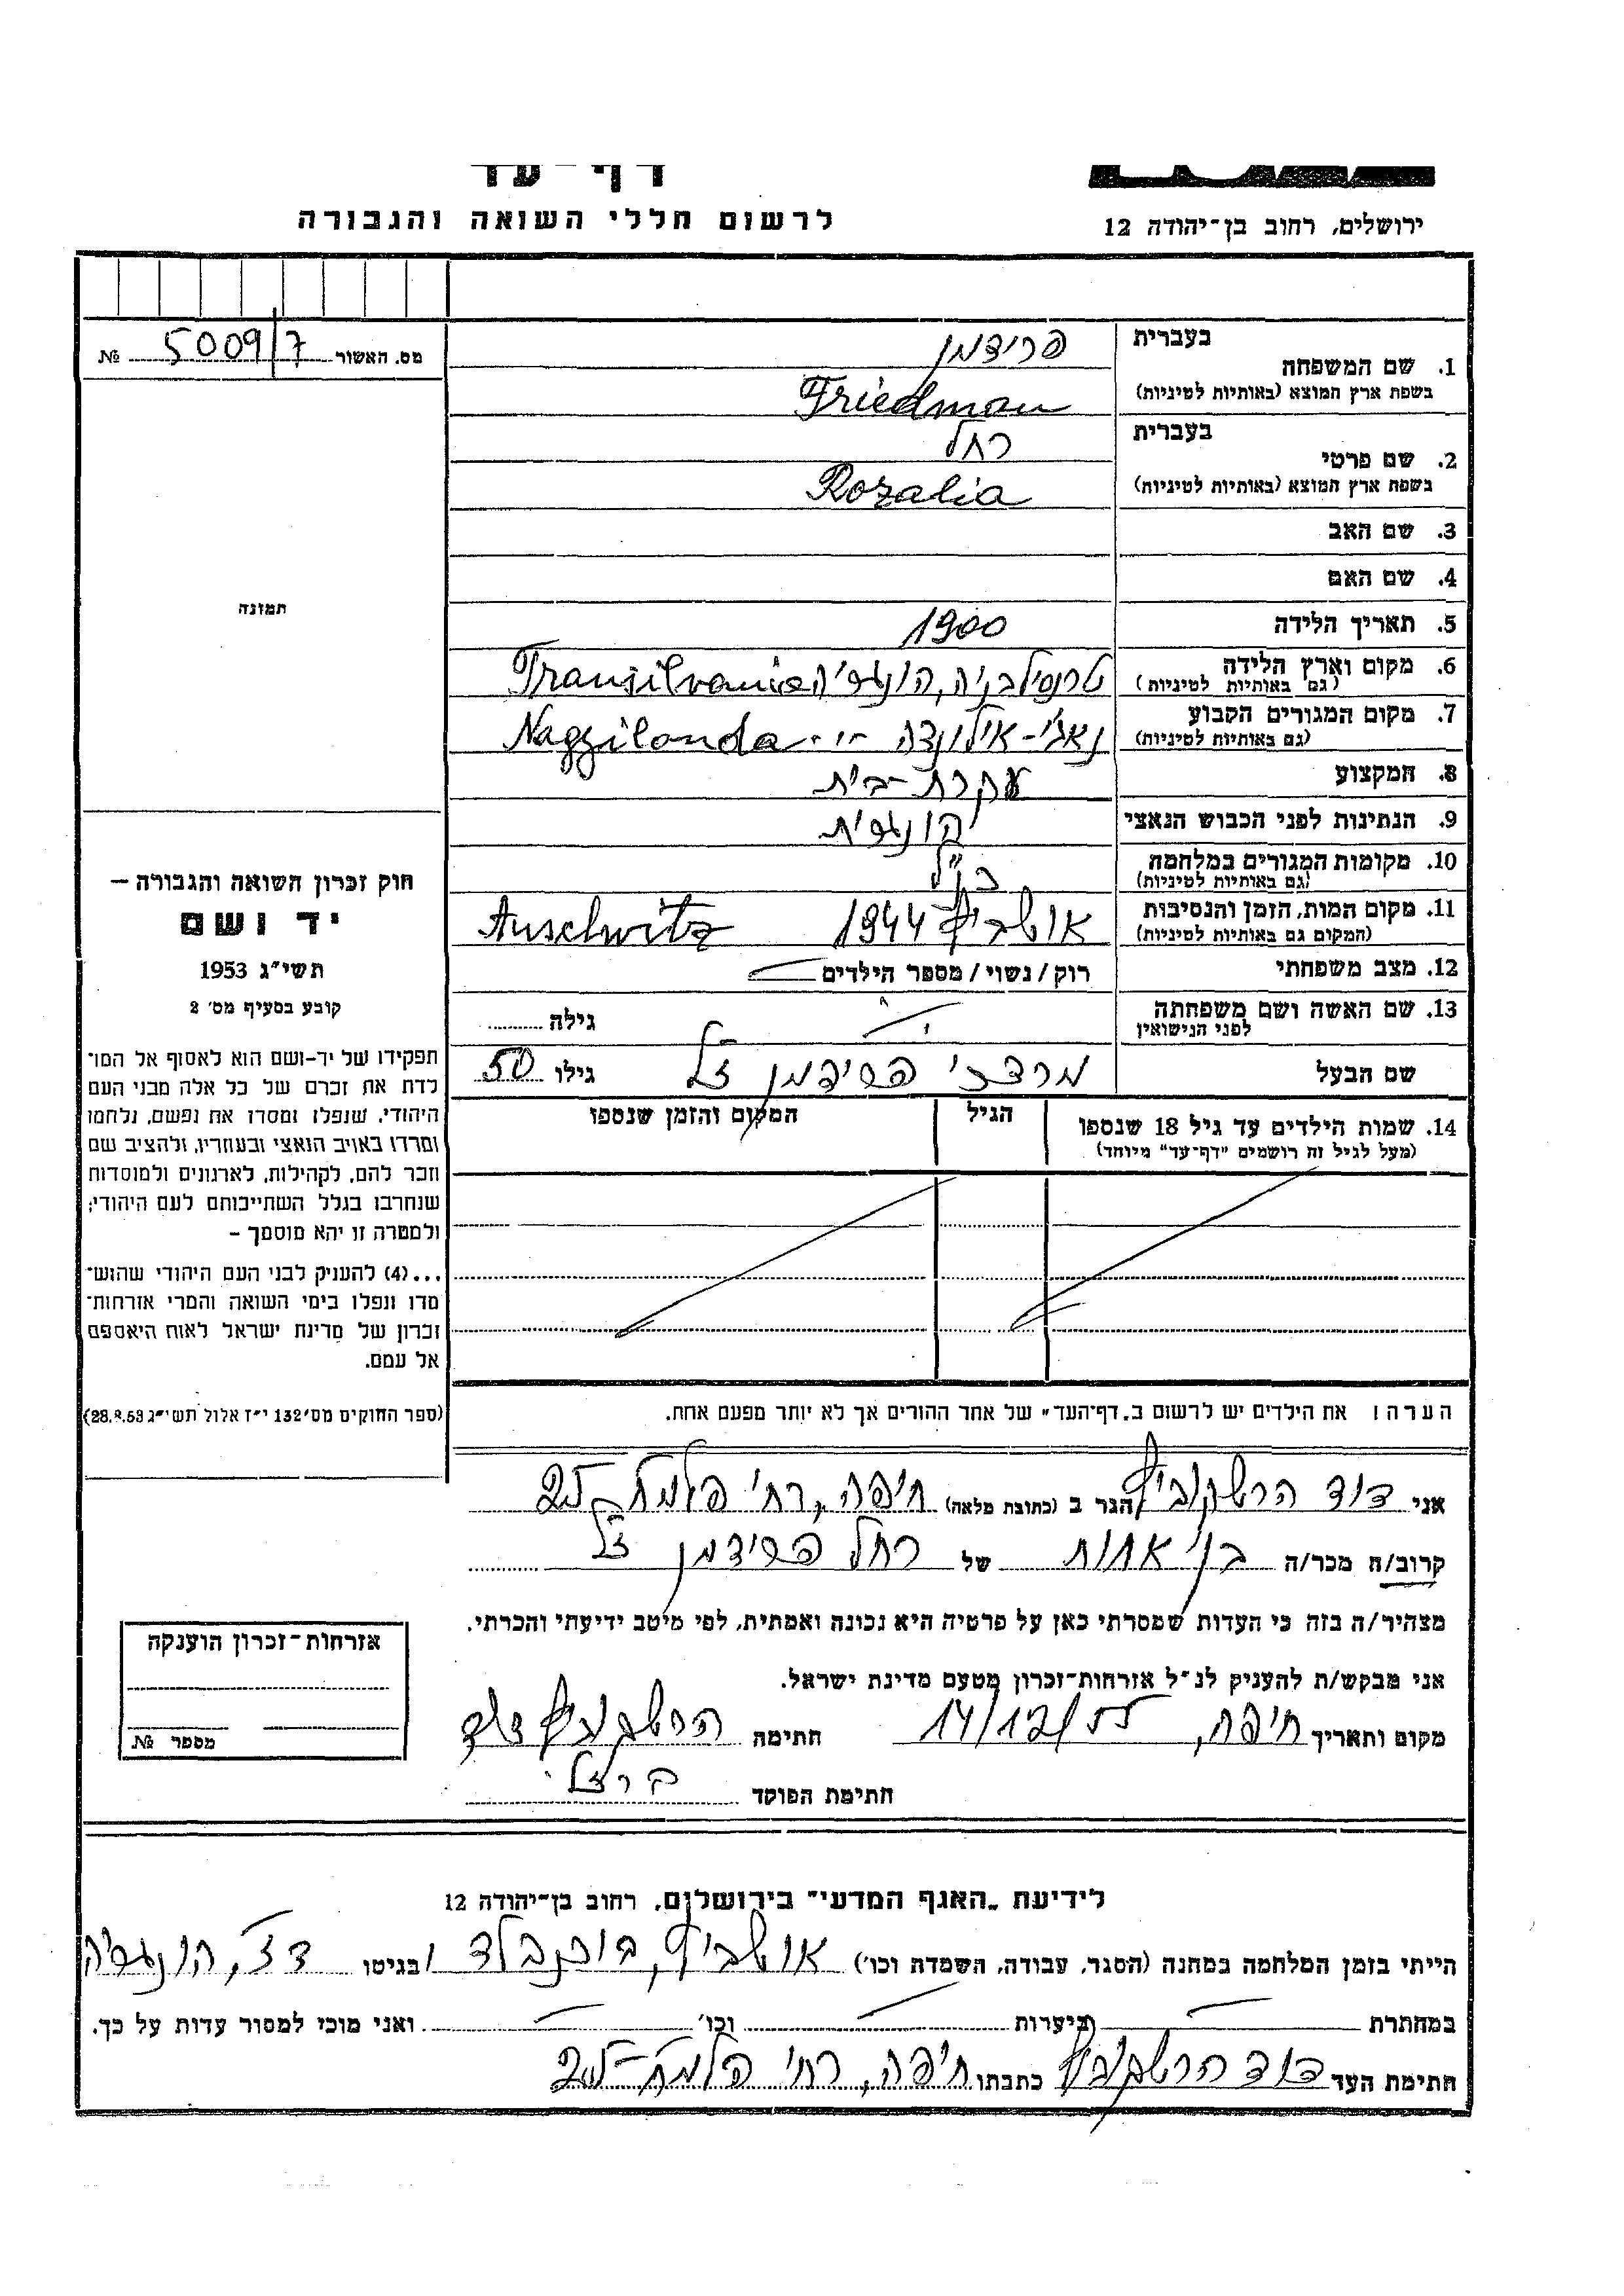 דף-עד
לרשום חללי השואה והגבורה
ירושלים, רחוב בן-יהודה 12
מס. האשור 5009/7 №
בעברית
פרידמן
1. שם המשפחה
בשפת ארץ המוצא (באותיות לטיניות)
Friedman
בעברית
רחל
2. שם פרטי
בשפת ארץ המוצא (באותיות לטיניות)
Rozalia
3. שם האב
4. שם האם
5. תאריך הלידה 1900
6. מקום וארץ הלידה
(גם באותיות לטיניות)
טרנסילבניה, הונגריה Transilvania
7. מקום המגורים הקבוע
(גם באותיות לטיניות)
נאג'י-אילונדה Nagyilonda
8. המקצוע עקרת-בית
9. הנתינות לפני הכבוש הנאצי הונגרית
10. מקומות המגורים במלחמה
(גם באותיות לטיניות)
כנ"ל
11. מקום המות, הזמן והנסיבות
(המקום גם באותיות לטיניות)
אושביץ 1944 Auschwitz
12. מצב משפחתי רוק/נשוי/מספר הילדים
13. שם האשה ושם משפחתה
לפני הנישואין
גילה
שם הבעל מרדכי פרידמן ז"ל גילו 50
14. שמות הילדים עד גיל 18 שנספו
(מעל לגיל זה רושמים "דף-עד" מיוחד)
הגיל
המקום והזמן שנספו
הערה: את הילדים יש לרשום ב"דף-העד" של אחד ההורים אך לא יותר מפעם אחת.
תמונה
חוק זכרון השואה והגבורה –
יד ושם
תשי"ג 1953
קובע בסעיף מס' 2
תפקידו של יד-ושם הוא לאסוף אל המו־
לדת את זכרם של כל אלה מבני העם
היהודי, שנפלו ומסרו את נפשם, נלחמו
ומרדו באויב הנאצי ובעוזריו, ולהציב שם
וזכר להם, לקהילות, לארגונים ולמוסדות
שנחרבו בגלל השתייכותם לעם היהודי;
ולמטרה זו יהא מוסמך –
...(4) להעניק לבני העם היהודי שהוש־
מדו ונפלו בימי השואה והמרי אזרחות־
זכרון של מדינת ישראל לאות היאספם
אל עמם.
(ספר החוקים מס' 132 י"ז אלול תשי"ג 28.8.53)
אני דוד הרשקוביץ הגר ב (כתובת מלאה) חיפה, רח'
קרוב/ה מכר/ה בן אחות של רחל פרידמן ז"ל
מצהיר/ה בזה כי העדות שמסרתי כאן על פרטיה היא נכונה ואמתית, לפי מיטב ידיעתי והכרתי.
אני מבקש/ת להעניק לנ"ל אזרחות-זכרון מטעם מדינת ישראל.
מקום ותאריך חיפה, 14/12/55 חתימה הרשקוביץ דוד
חתימת הפוקד ברזלי
אזרחות-זכרון הוענקה
מספר №
לידיעת "האגף המדעי" בירושלים, רחוב בן-יהודה 12
הייתי בזמן המלחמה במחנה (הסגר, עבודה, השמדה וכו') אושביץ, בוכנבלד ובגיטו דז', הונגריה
במחתרת ביערות וכו' ואני מוכן למסור עדות על כך.
חתימת העד דוד הרשקוביץ כתבתו חיפה, רח'